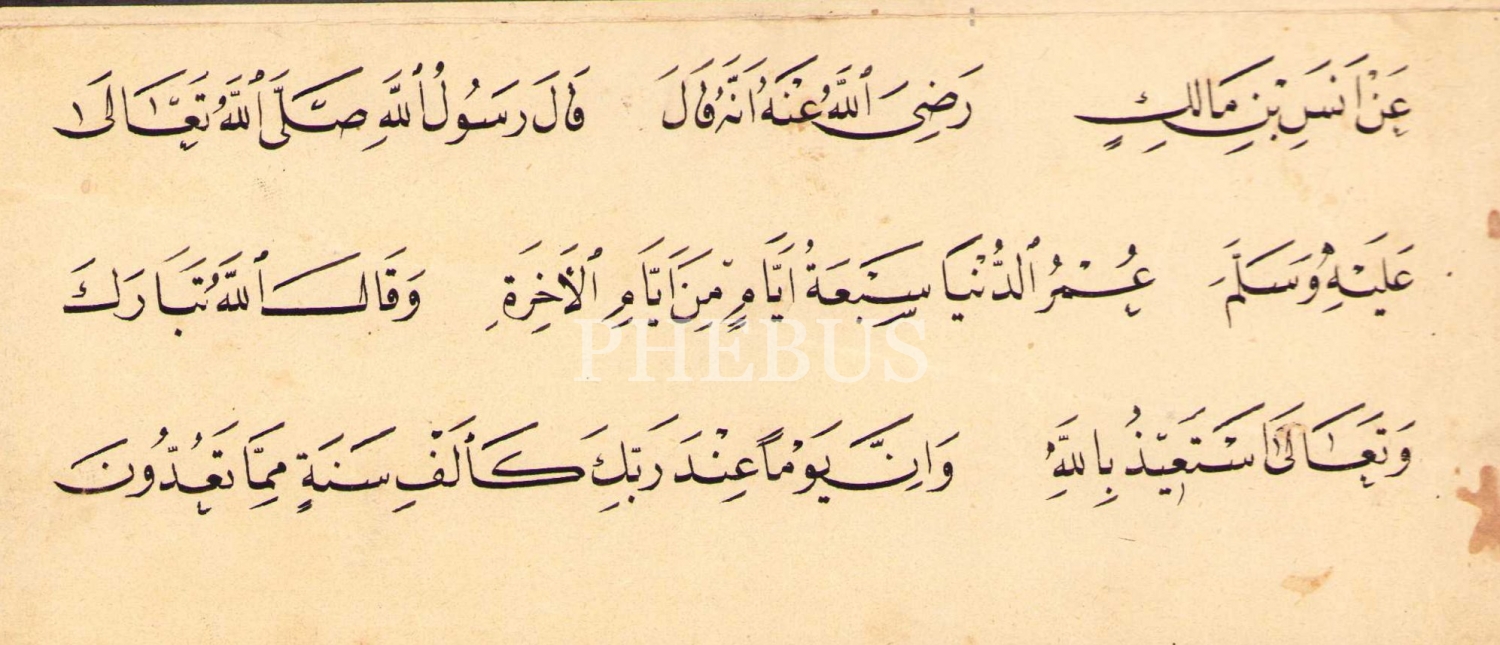 عَنْ اَنَسِ بْنِ مَالِكٍ رَضِيَ ٱللَّهُ عَنْهُ اَنَّهُ قَالَ قَالَ رَسُولُ ٱللَّهِ صَلَّى ٱللَّهُ تَعَالَى
عَلَيْهِ وَسَلَّمَ عُمْرُ ٱلدُّنْيَا سَبْعَةُ اَيَّامٍ مِنَ اَيَّامِ ٱلْأَخِرَةِ وَقَالَ ٱللَّهُ تَبَارَكَ
وَتَعَالَى اَسْتَعِيذُ بِاللَّهِ وَاِنَّ يَوْمًا عِنْدَ رَبِّكَ كَأَلْفِ سَنَةٍ مِمَّا تَعُدُّونَ
PHEBUS